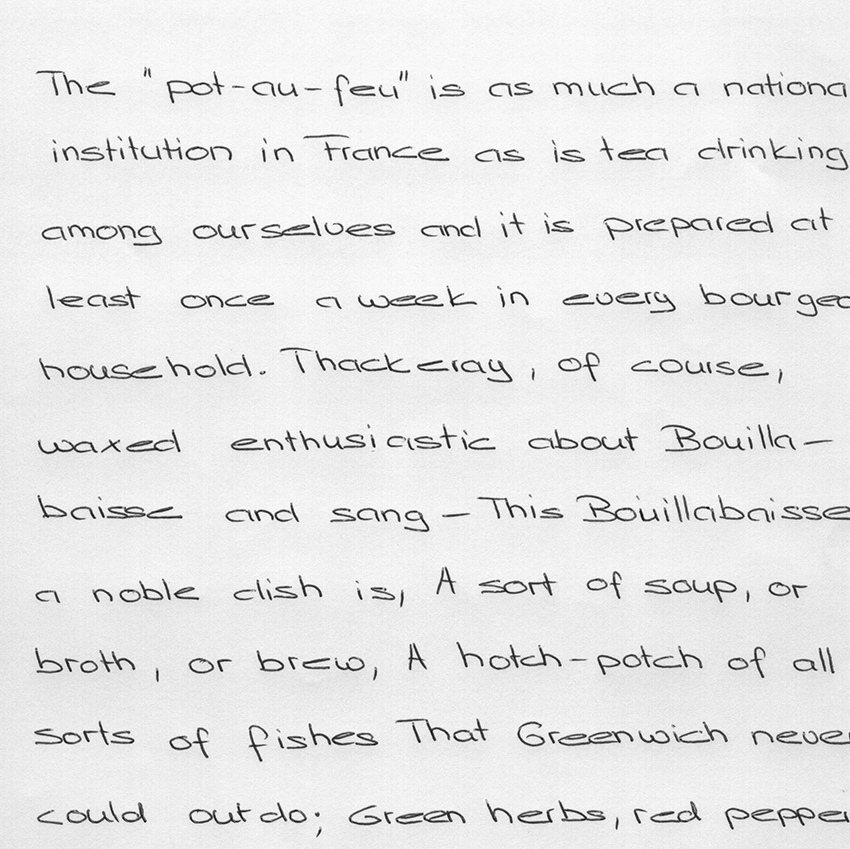 The "pot-au-feu" is as much a nationa
institution in France as is tea drinking
among ourselves and it is prepared at
least once a week in every bourgeo
household. Thackeray, of course,
waxed enthusiastic about Bouilla-
baisse and sang - This Bouillabaisse
a noble dish is, A sort of soup, or
broth, or brew, A hotch-potch of all
sorts of fishes That Greenwich never
could outdo; Green herbs, red pepper